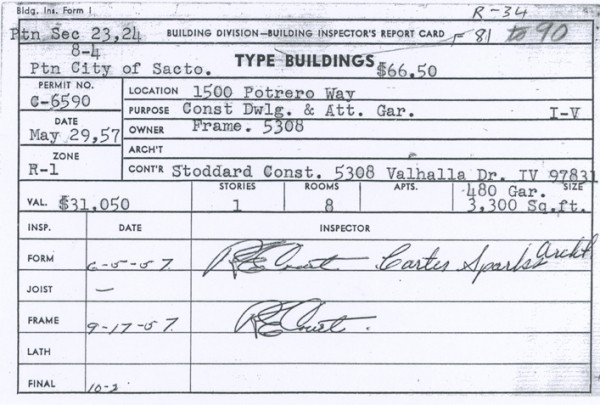 Bldg. Ins. Form 1
R-34
Ptn Sec 23,24 BUILDING DIVISION—BUILDING INSPECTOR'S REPORT CARD F 81 to 90
8-4
Ptn City of Sacto. TYPE BUILDINGS $66.50
PERMIT NO. C-6590
LOCATION 1500 Potrero Way
PURPOSE Const Dwlg. & Att. Gar. I-V
DATE May 29,57
OWNER Frame. 5308
ARCH'T
ZONE R-1
CONT'R Stoddard Const. 5308 Valhalla Dr. IV 97831
VAL. $31,050 STORIES 1 ROOMS 8 APTS. 480 Gar. SIZE 3,300 Sq.ft.
INSP. DATE INSPECTOR
FORM 6-5-57 Carter Sparks Archt
JOIST —
FRAME 9-17-57
LATH
FINAL 10-2